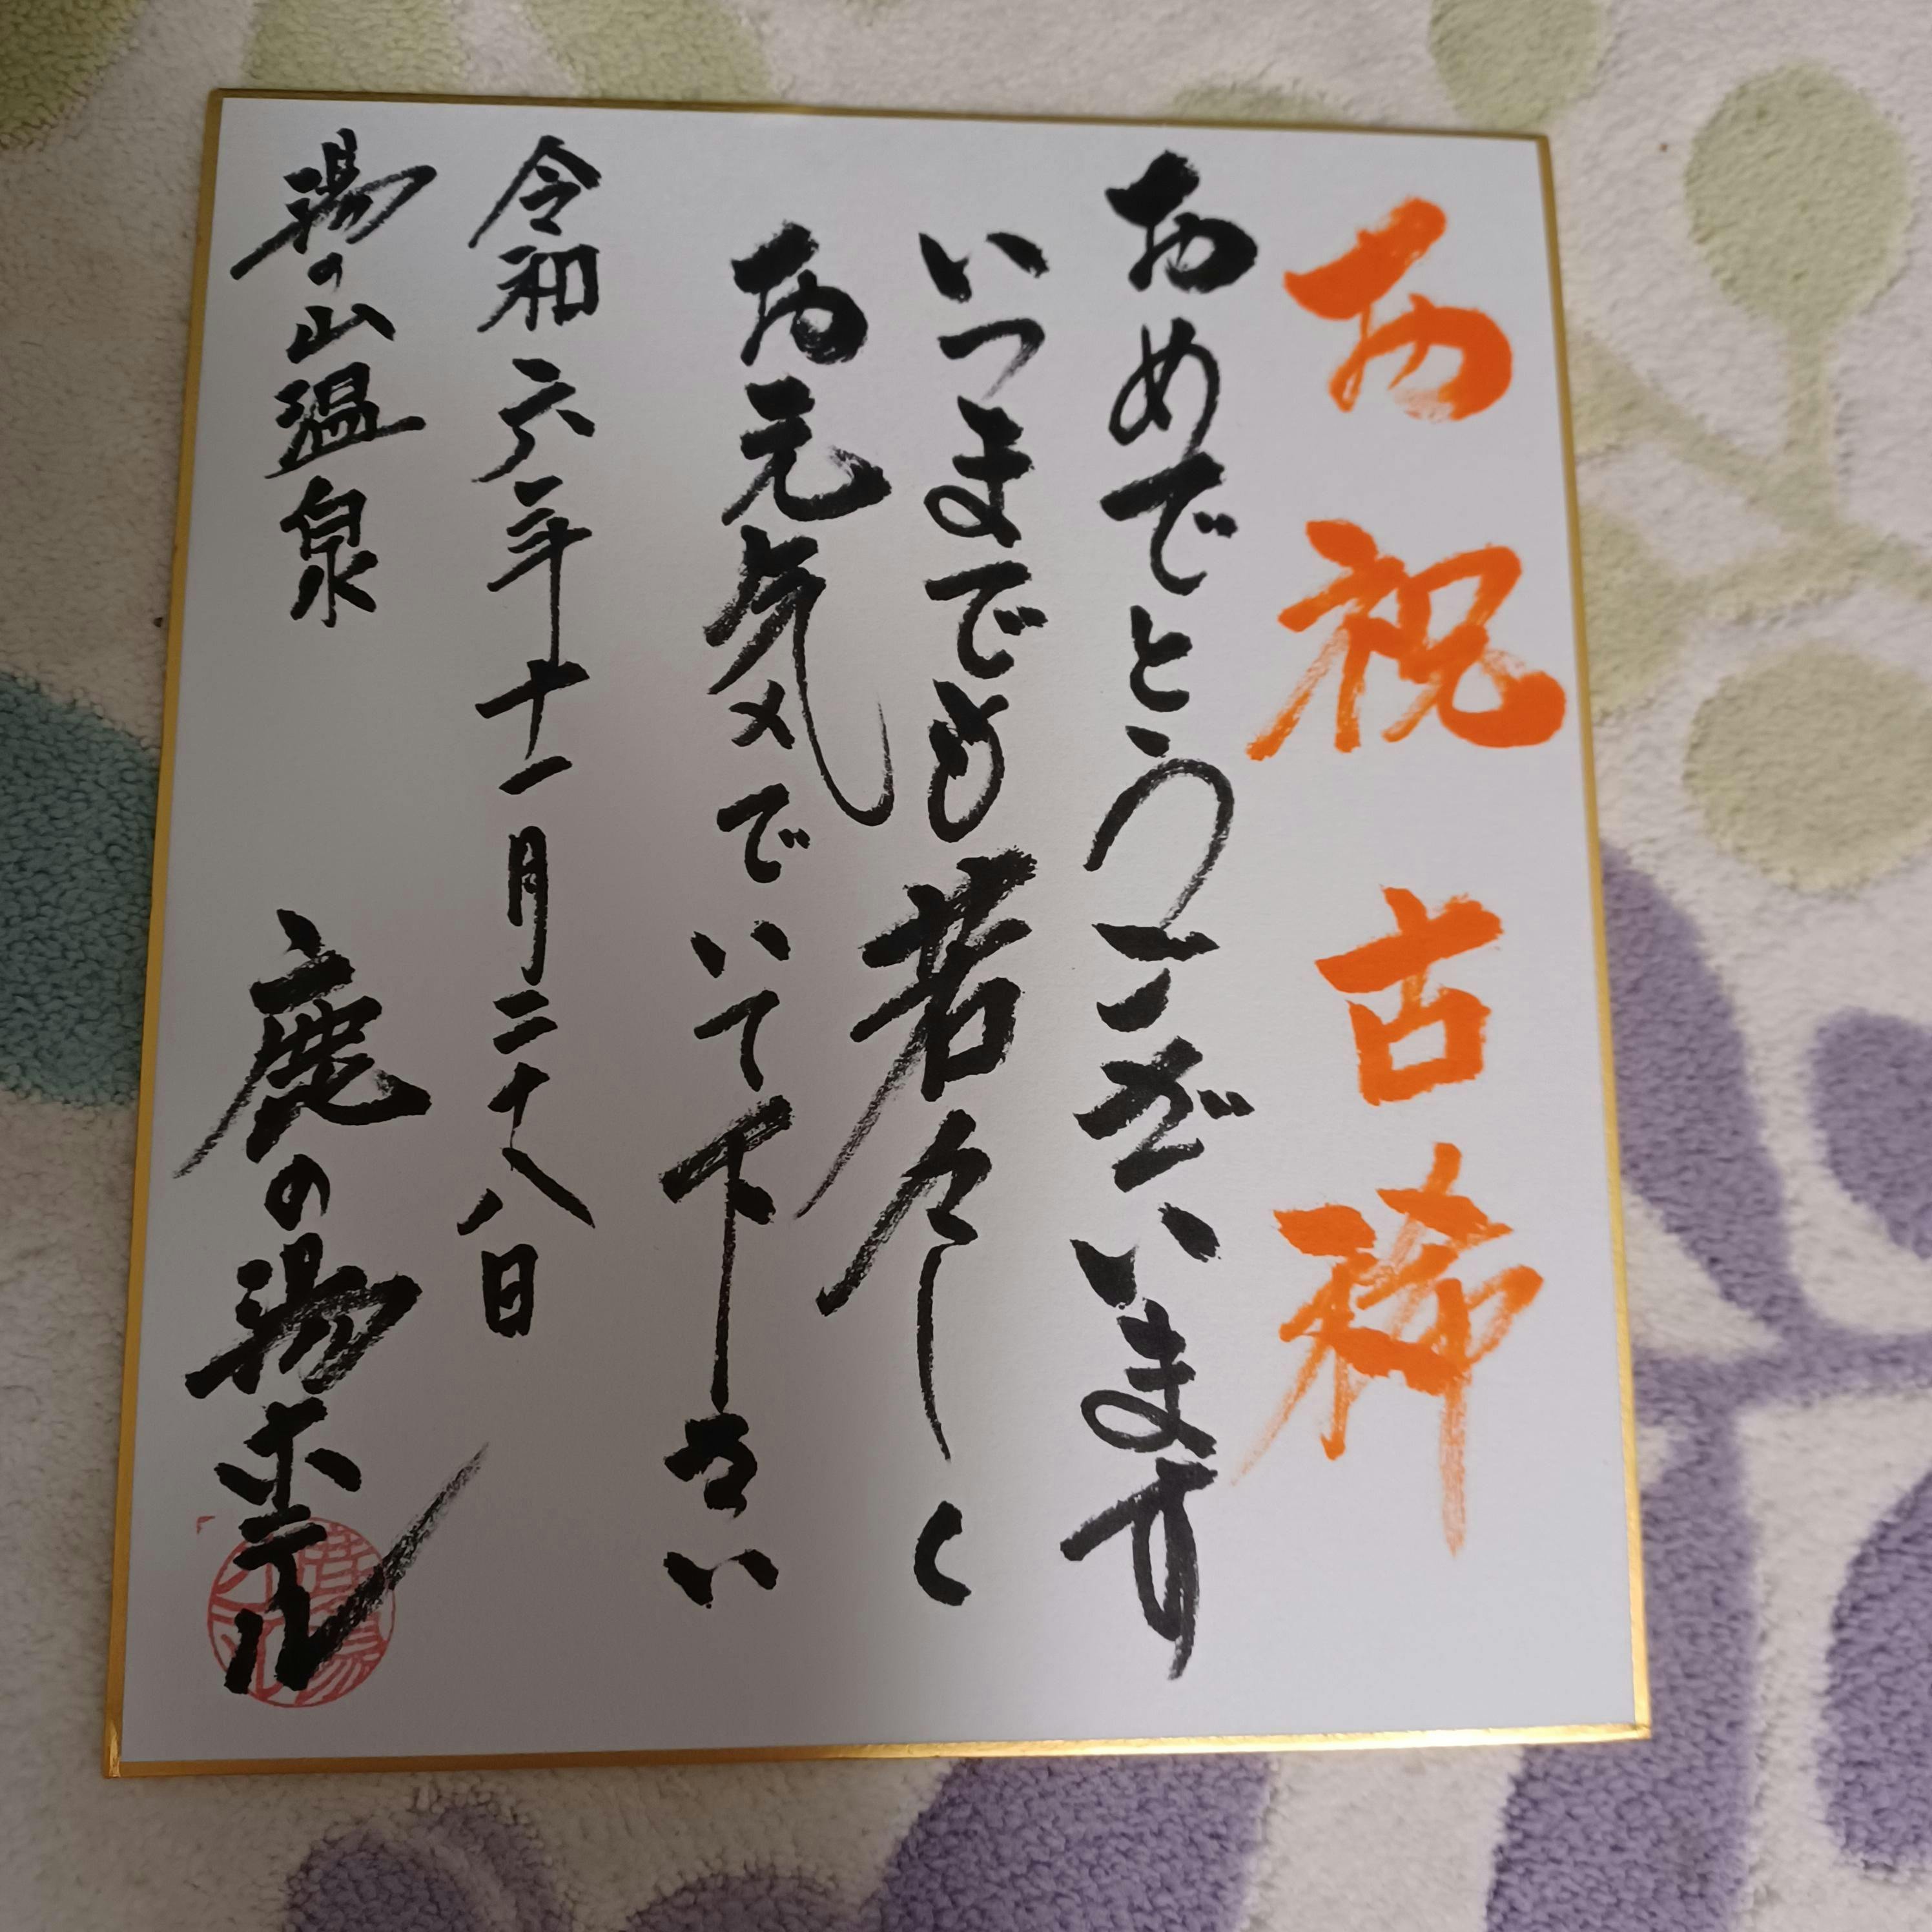 お祝 古稀
おめでとうございます
いつまでも若々しく
お元気でいて下さい
令和六年十一月二十八日
湯の山温泉 鹿の湯ホテル